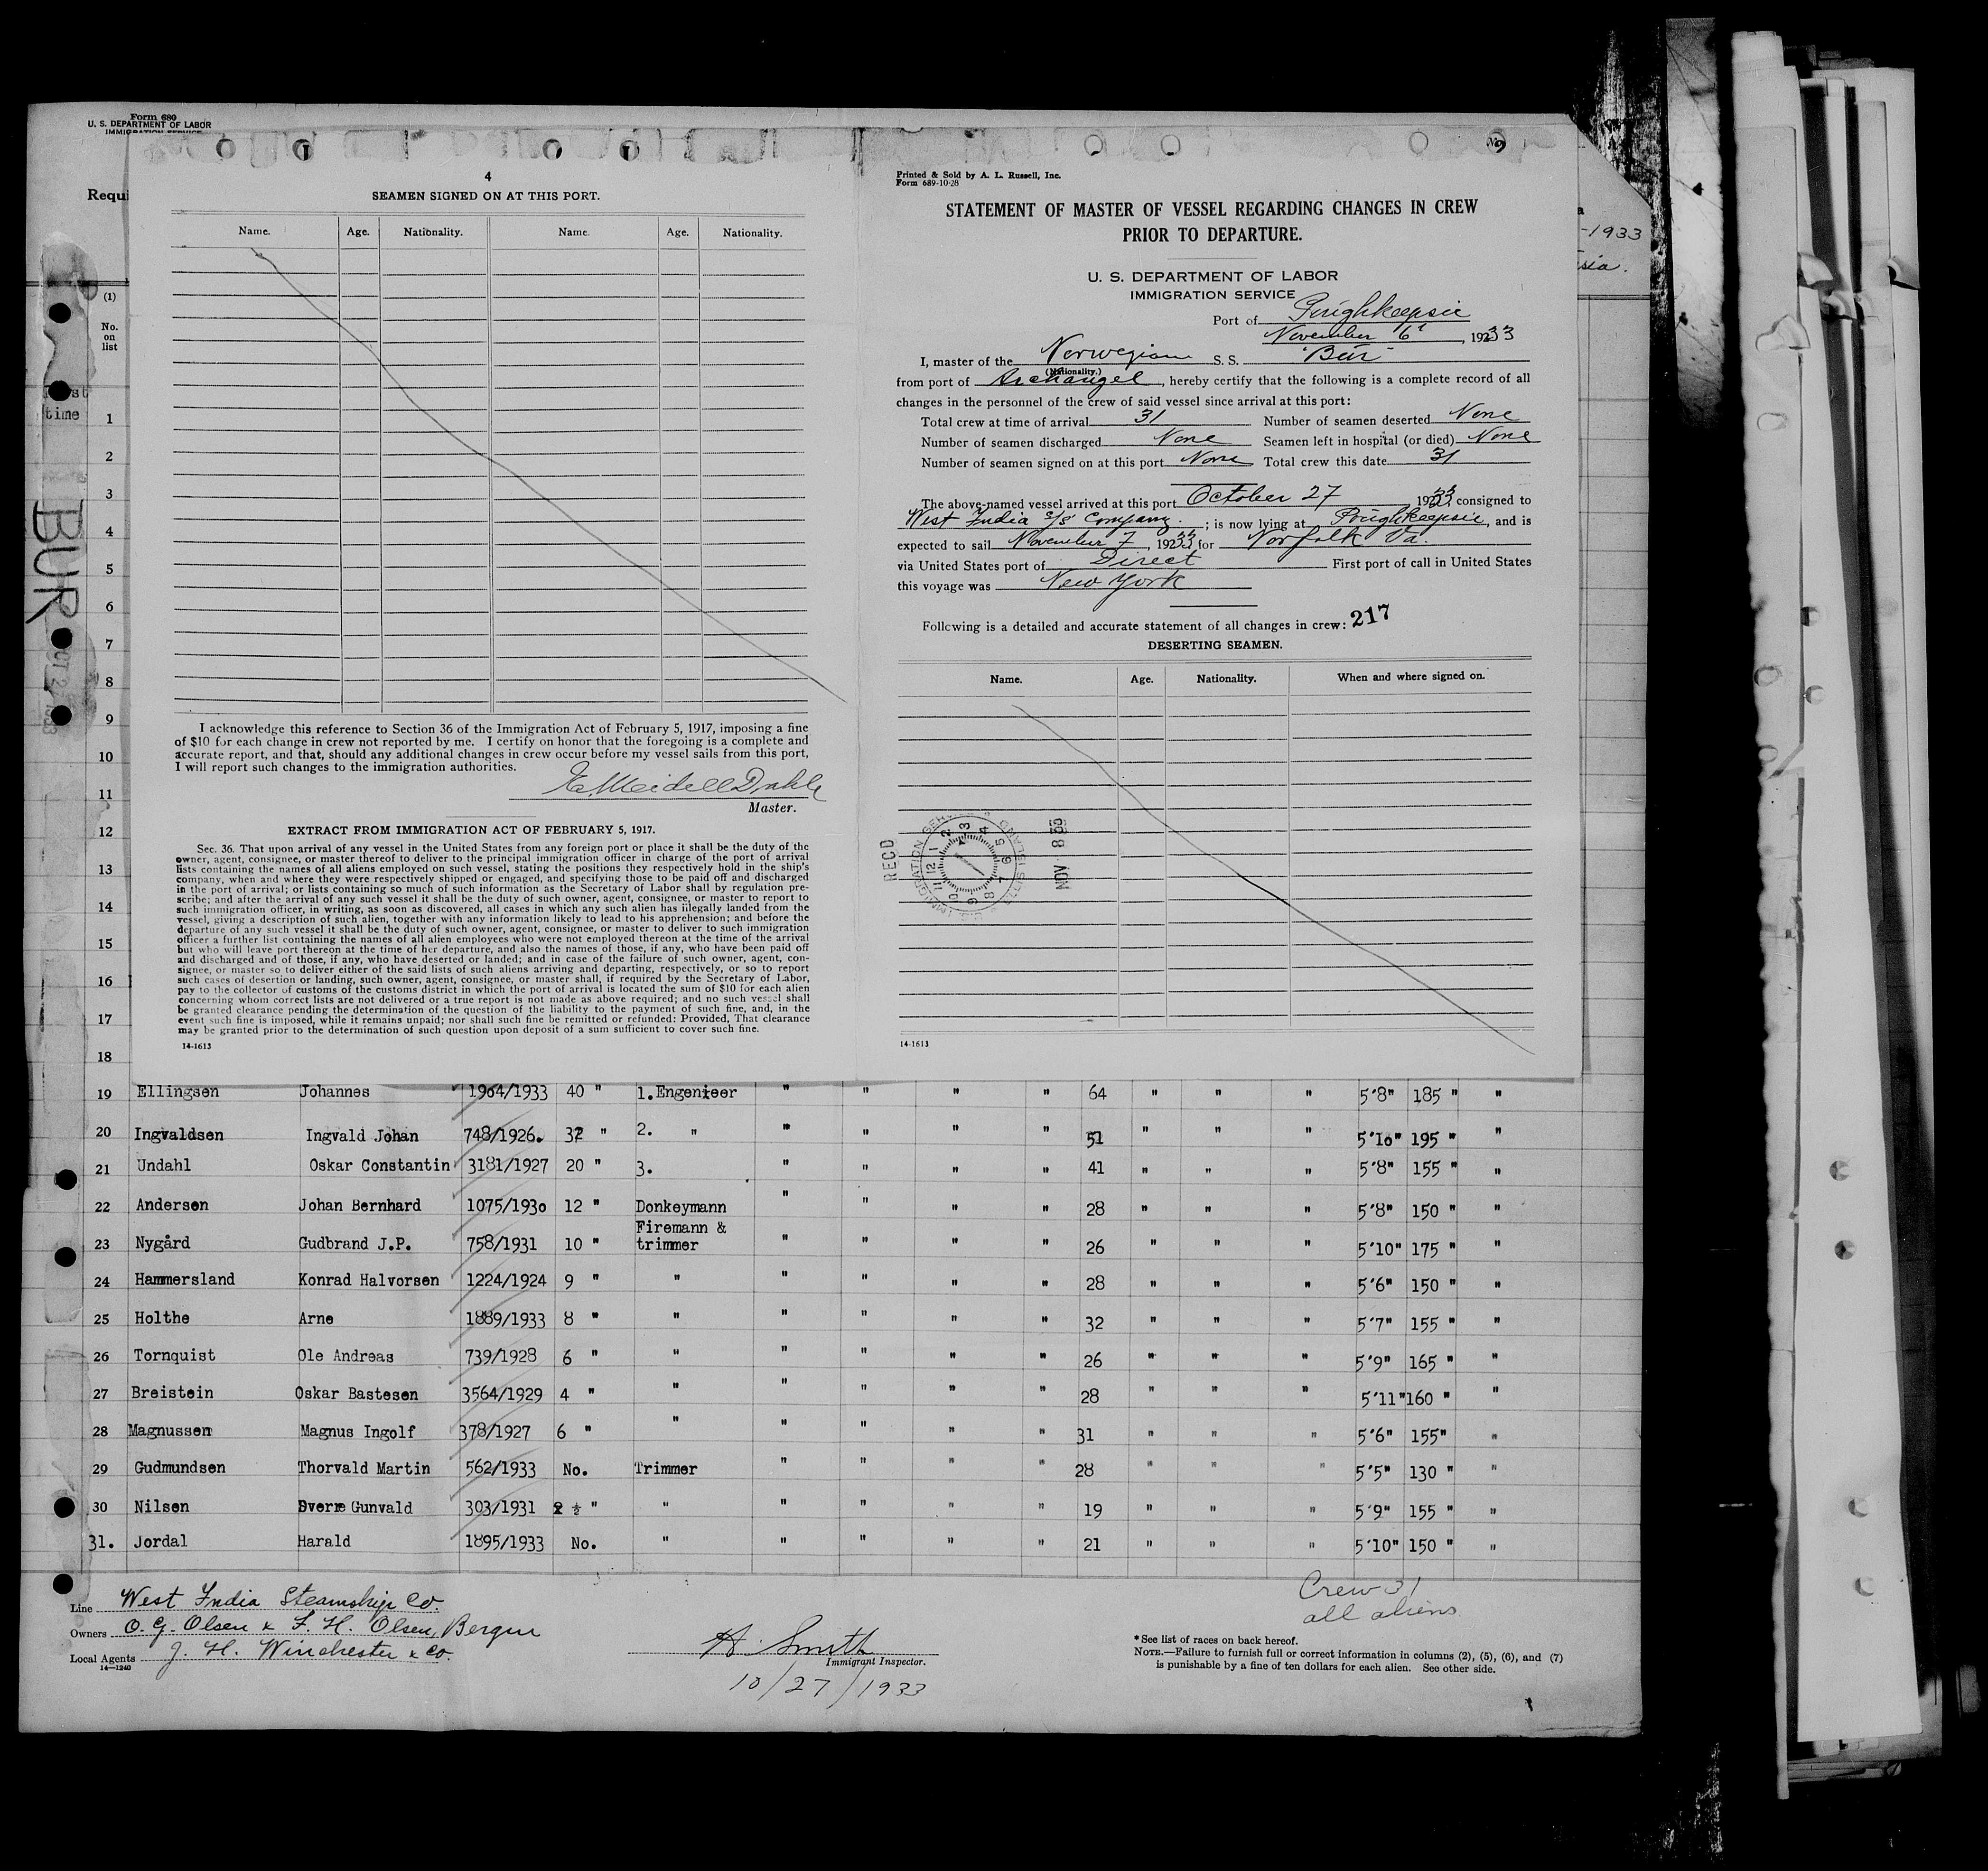 Form 680
U. S. DEPARTMENT OF LABOR
IMMIGRATION SERVICE
Requi
(1)
No.
on
list
time
BUR
1
2
3
4
5
6
7
8
9
10
11
12
13
14
15
16
17
18
-1933
sia.
4
SEAMEN SIGNED ON AT THIS PORT.
Name. Age. Nationality. Name. Age. Nationality.
I acknowledge this reference to Section 36 of the Immigration Act of February 5, 1917, imposing a fine
of $10 for each change in crew not reported by me. I certify on honor that the foregoing is a complete and
accurate report, and that, should any additional changes in crew occur before my vessel sails from this port,
I will report such changes to the immigration authorities.
Master.
EXTRACT FROM IMMIGRATION ACT OF FEBRUARY 5, 1917.
Sec. 36. That upon arrival of any vessel in the United States from any foreign port or place it shall be the duty of the
owner, agent, consignee, or master thereof to deliver to the principal immigration officer in charge of the port of arrival
lists containing the names of all aliens employed on such vessel, stating the positions they respectively hold in the ship's
company, when and where they were respectively shipped or engaged, and specifying those to be paid off and discharged
in the port of arrival; or lists containing so much of such information as the Secretary of Labor shall by regulation pre-
scribe; and after the arrival of any such vessel it shall be the duty of such owner, agent, consignee, or master to report to
such immigration officer, in writing, as soon as discovered, all cases in which any such alien has illegally landed from the
vessel, giving a description of such alien, together with any information likely to lead to his apprehension; and before the
departure of any such vessel it shall be the duty of such owner, agent, consignee, or master to deliver to such immigration
officer a further list containing the names of all alien employees who were not employed thereon at the time of the arrival
but who will leave port thereon at the time of her departure, and also the names of those, if any, who have been paid off
and discharged and of those, if any, who have deserted or landed; and in case of the failure of such owner, agent, con-
signee, or master so to deliver either of the said lists of such aliens arriving and departing, respectively, or so to report
such cases of desertion or landing, such owner, agent, consignee, or master shall, if required by the Secretary of Labor,
pay to the collector of customs of the customs district in which the port of arrival is located the sum of $10 for each alien
concerning whom correct lists are not delivered or a true report is not made as above required; and no such vessel shall
be granted clearance pending the determination of the question of the liability to the payment of such fine, and, in the
event such fine is imposed, while it remains unpaid; nor shall such fine be remitted or refunded: Provided, That clearance
may be granted prior to the determination of such question upon deposit of a sum sufficient to cover such fine.
14-1613
Printed & Sold by A. L. Russell, Inc.
Form 689-10-28
STATEMENT OF MASTER OF VESSEL REGARDING CHANGES IN CREW
PRIOR TO DEPARTURE.
U. S. DEPARTMENT OF LABOR
IMMIGRATION SERVICE
Port of Poughkeepsie
November 6, 1933
I, master of the Norwegian S. S. "Bur"
(Nationality.)
from port of Archangel, hereby certify that the following is a complete record of all
changes in the personnel of the crew of said vessel since arrival at this port:
Total crew at time of arrival 31 Number of seamen deserted None
Number of seamen discharged None Seamen left in hospital (or died) None
Number of seamen signed on at this port None Total crew this date 31
The above-named vessel arrived at this port October 27 1933 consigned to
West India S/S Company. ; is now lying at Poughkeepsie, and is
expected to sail November 7, 1933 for Norfolk Va.
via United States port of Direct First port of call in United States
this voyage was New York
Following is a detailed and accurate statement of all changes in crew: 217
DESERTING SEAMEN.
Name. Age. Nationality. When and where signed on.
RECD
NOV 8 33
14-1613
19 Ellingsen Johannes 1964/1933 40 " 1.Engenieer " " " " 64 " " " 5'8" 185 " "
20 Ingvaldsen Ingvald Johan 748/1926. 32 " 2. " " " " " 51 " " " 5'10" 195 " "
21 Undahl Oskar Constantin 3181/1927 20 " 3. " " " " 41 " " " 5'8" 155 " "
22 Andersen Johan Bernhard 1075/1930 12 " Donkeymann " " " " 28 " " " 5'8" 150 " "
Firemann &
23 Nygård Gudbrand J.P. 758/1931 10 " trimmer " " " " 26 " " " 5'10" 175 " "
24 Hammersland Konrad Halvorsen 1224/1924 9 " " " " " " 28 " " " 5'6" 150 " "
25 Holthe Arne 1889/1933 8 " " " " " " 32 " " " 5'7" 155 " "
26 Tornquist Ole Andreas 739/1928 6 " " " " " " 26 " " " 5'9" 165 " "
27 Breistein Oskar Bastesen 3564/1929 4 " " " " " " 28 " " " 5'11" 160 " "
28 Magnussen Magnus Ingolf 378/1927 6 " " " " " " 31 " " " 5'6" 155" "
29 Gudmundsen Thorvald Martin 562/1933 No. Trimmer " " " " 28 " " " 5'5" 130 " "
30 Nilsen Sverre Gunvald 303/1931 2 ½ " " " " " " 19 " " " 5'9" 155 " "
31. Jordal Harald 1895/1933 No. " " " " " 21 " " " 5'10" 150 " "
Crew 31
all aliens
Line West India Steamship Co.
Owners O. G. Olsen & F. H. Olsen, Bergen
Local Agents J. H. Winchester & Co.
14-1240
A. Smith
Immigrant Inspector.
10/27/1933
* See list of races on back hereof.
NOTE.—Failure to furnish full or correct information in columns (2), (5), (6), and (7)
is punishable by a fine of ten dollars for each alien. See other side.